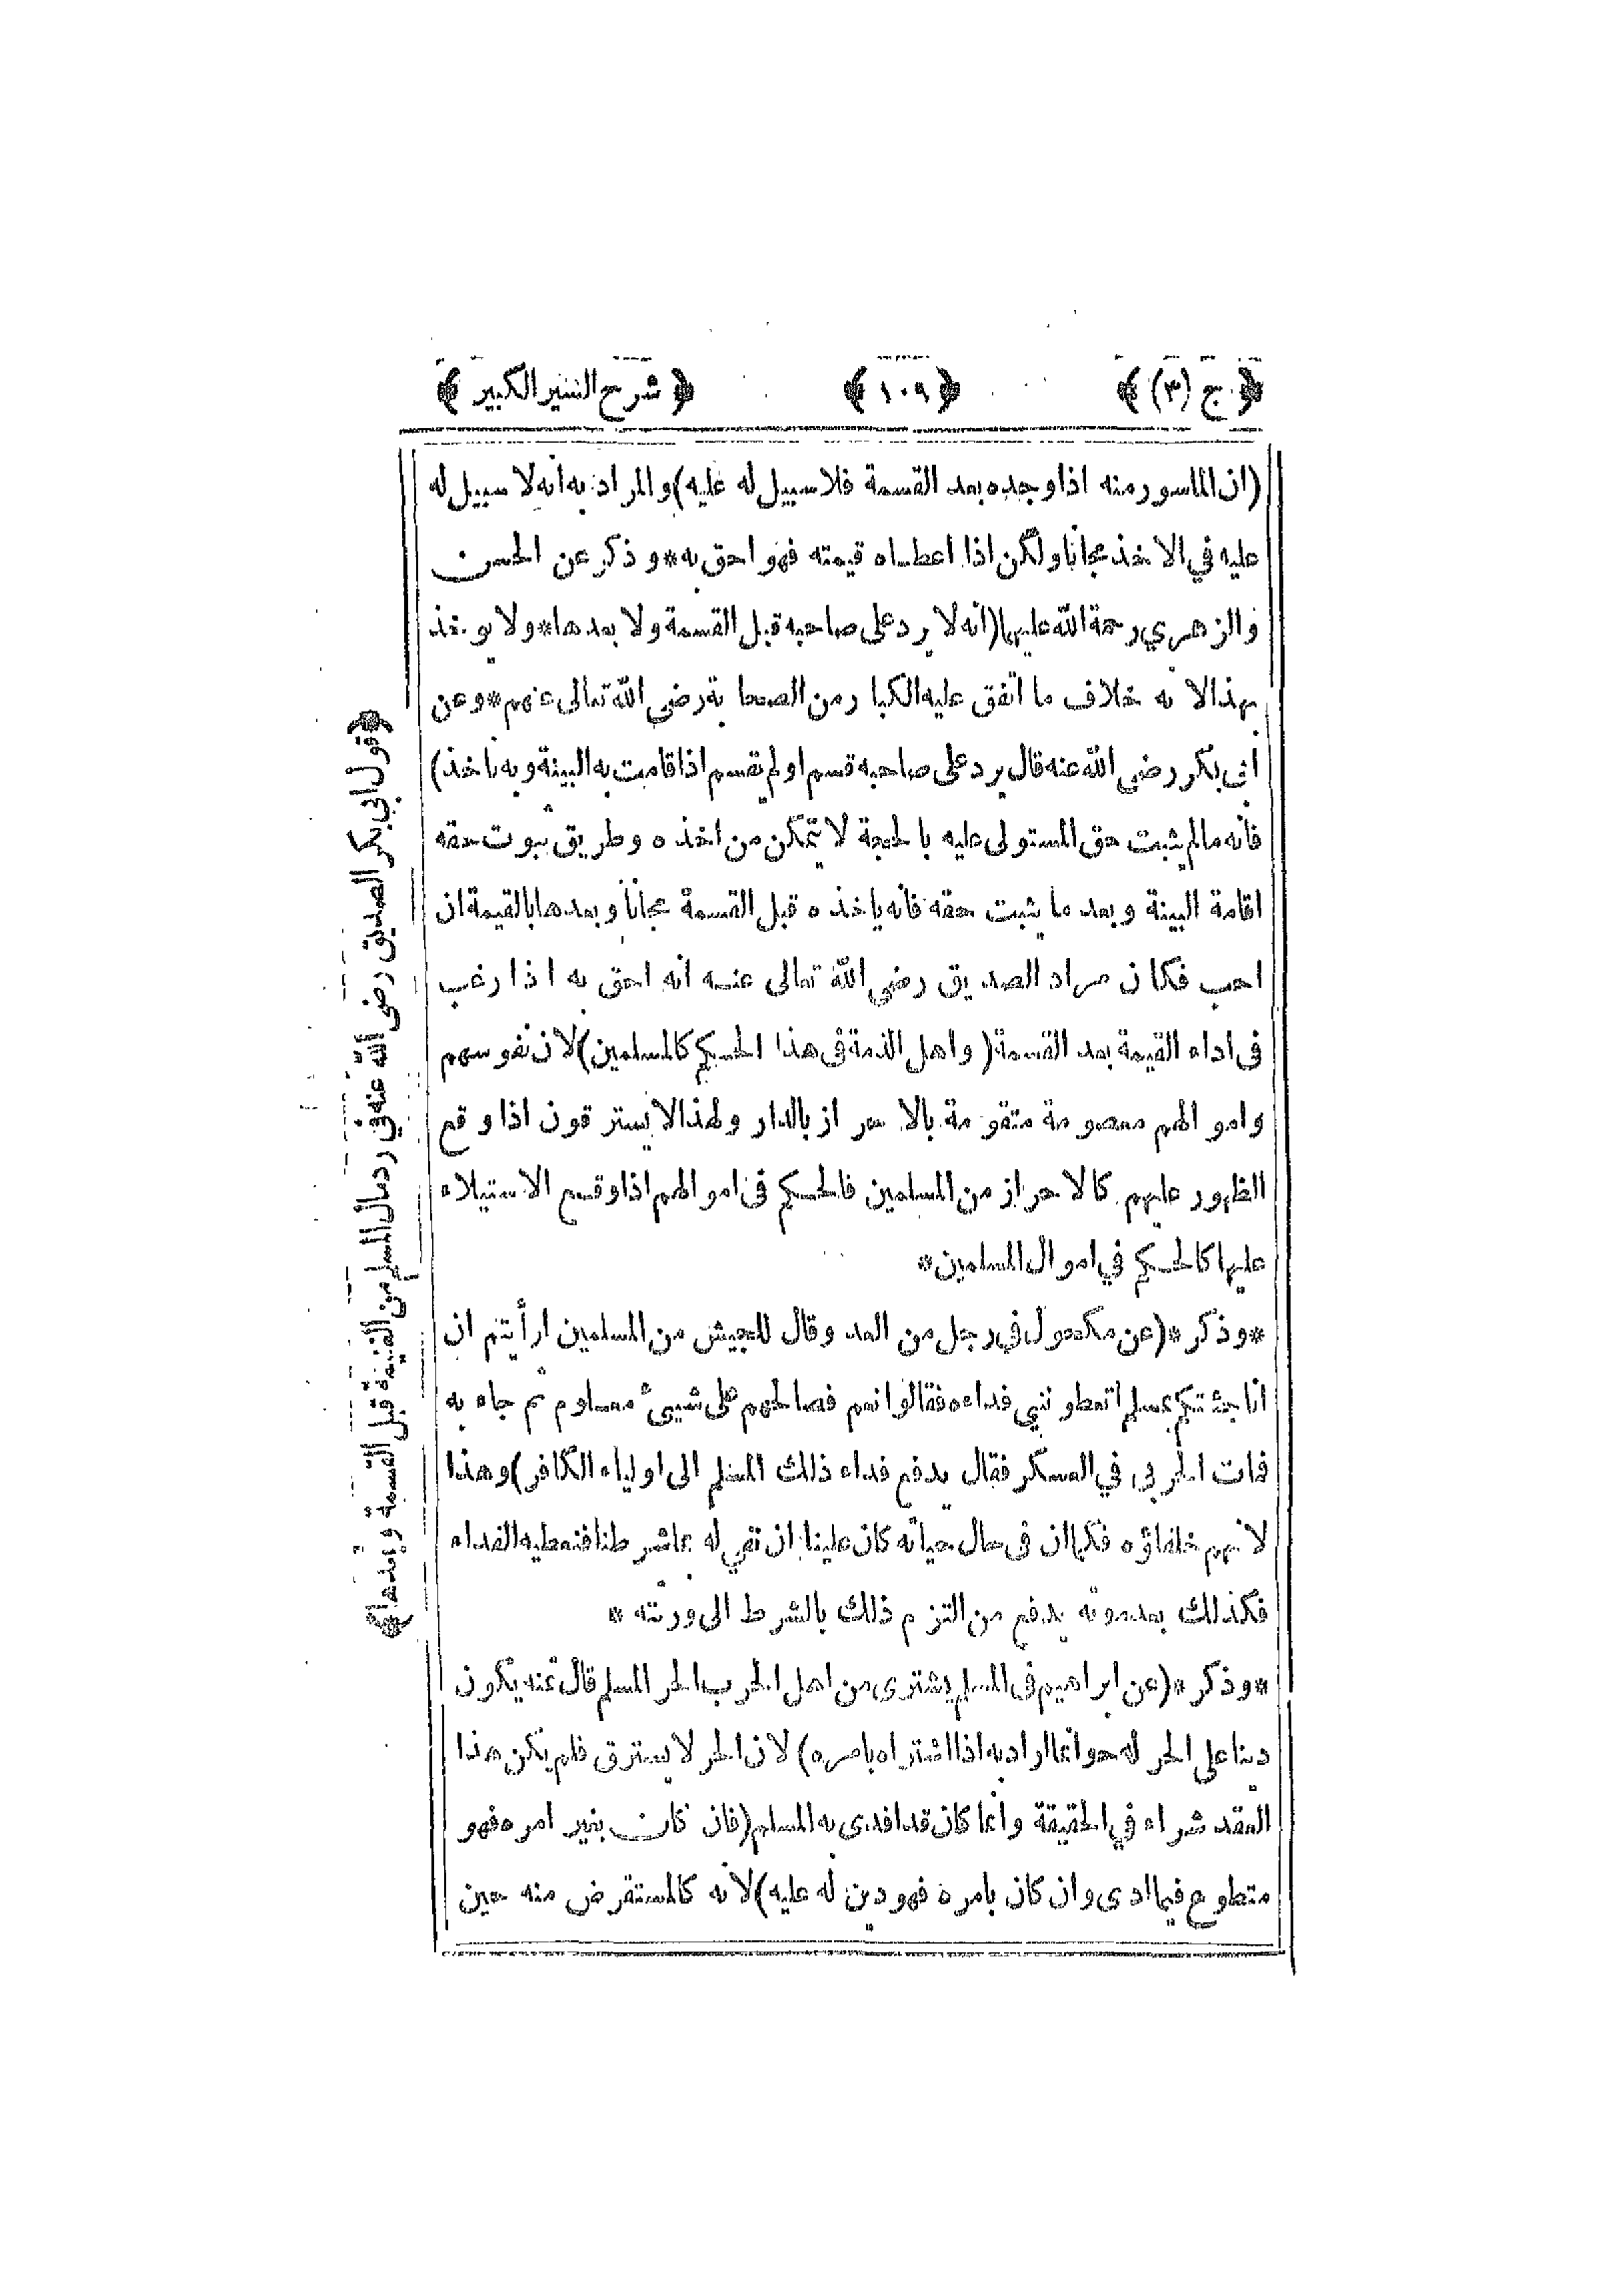 ﴿ ج (٣) ﴾ ﴿ ١٠٩ ﴾ ﴿ شرح السير الكبير ﴾
(ان الماسور منه اذا وجده بعد القسمة فلا سبيل له عليه) والمراد به انه لا سبيل له
عليه في الاخذ مجانا ولكن اذا اعطاه قيمته فهو احق به * وذكر عن الحسن
والزهري رحمة الله عليهما (انه لا يرد على صاحبه قبل القسمة ولا بعدها * ولا يوخذ
بهذا لانه خلاف ما اتفق عليه الكبار من الصحابة رضى الله تعالى عنهم * وعن
ابى بكر رضى الله عنه قال يرد على صاحبه قسم او لم يقسم اذا قامت به البينة وبه ناخذ)
فانه ما لم يثبت حق المستولى عليه بالحجة لا يتمكن من اخذه وطريق ثبوت حقه
اقامة البينة وبعد ما يثبت حقه فانه ياخذه قبل القسمة مجانا وبعدها بالقيمة ان
احب فكان مراد الصديق رضى الله تعالى عنه انه احق به اذا رغب
فى اداء القيمة بعد القسمة (واهل الذمة فى هذا الحكم كالمسلمين) لان نفوسهم
واموالهم معصومة متقومة بالاحراز بالدار ولهذا لا يسترقون اذا وقع
الظهور عليهم كالاحراز من المسلمين فالحكم فى اموالهم اذا وقع الاستيلاء
عليها كالحكم في اموال المسلمين *
* وذكر * (عن مكحول في رجل من العدو قال للجيش من المسلمين ارأيتم ان
انا جئتكم بمسلم اتعطوننى فداءه فقالوا نعم فصالحهم على شيئ معلوم ثم جاء به
فمات الحربى في العسكر فقال يدفع فداء ذلك المسلم الى اولياء الكافر) وهذا
لانهم خلفاؤه فكما ان فى حال حياته كان علينا ان نفي له بما شرطنا فنعطيه الفداء
فكذلك بعد موته يدفع من التزم ذلك بالشرط الى ورثته *
* وذكر * (عن ابراهيم فى المسلم يشترى من اهل الحرب الحر المسلم قال ثمنه يكون
دينا على الحر له هو انما اراد به اذا اشتراه بامره) لان الحر لا يسترق فلم يكن هذا
العقد شراء في الحقيقة وانما كان قد افدى به المسلم (فان كان بغير امره فهو
متطوع فيما ادى وان كان بامره فهو دين له عليه) لانه كالمستقرض منه حين
﴿ قول ابي بكر الصديق رضى الله عنه في رد مال المسلم من الغنيمة قبل القسمة وبعدها ﴾